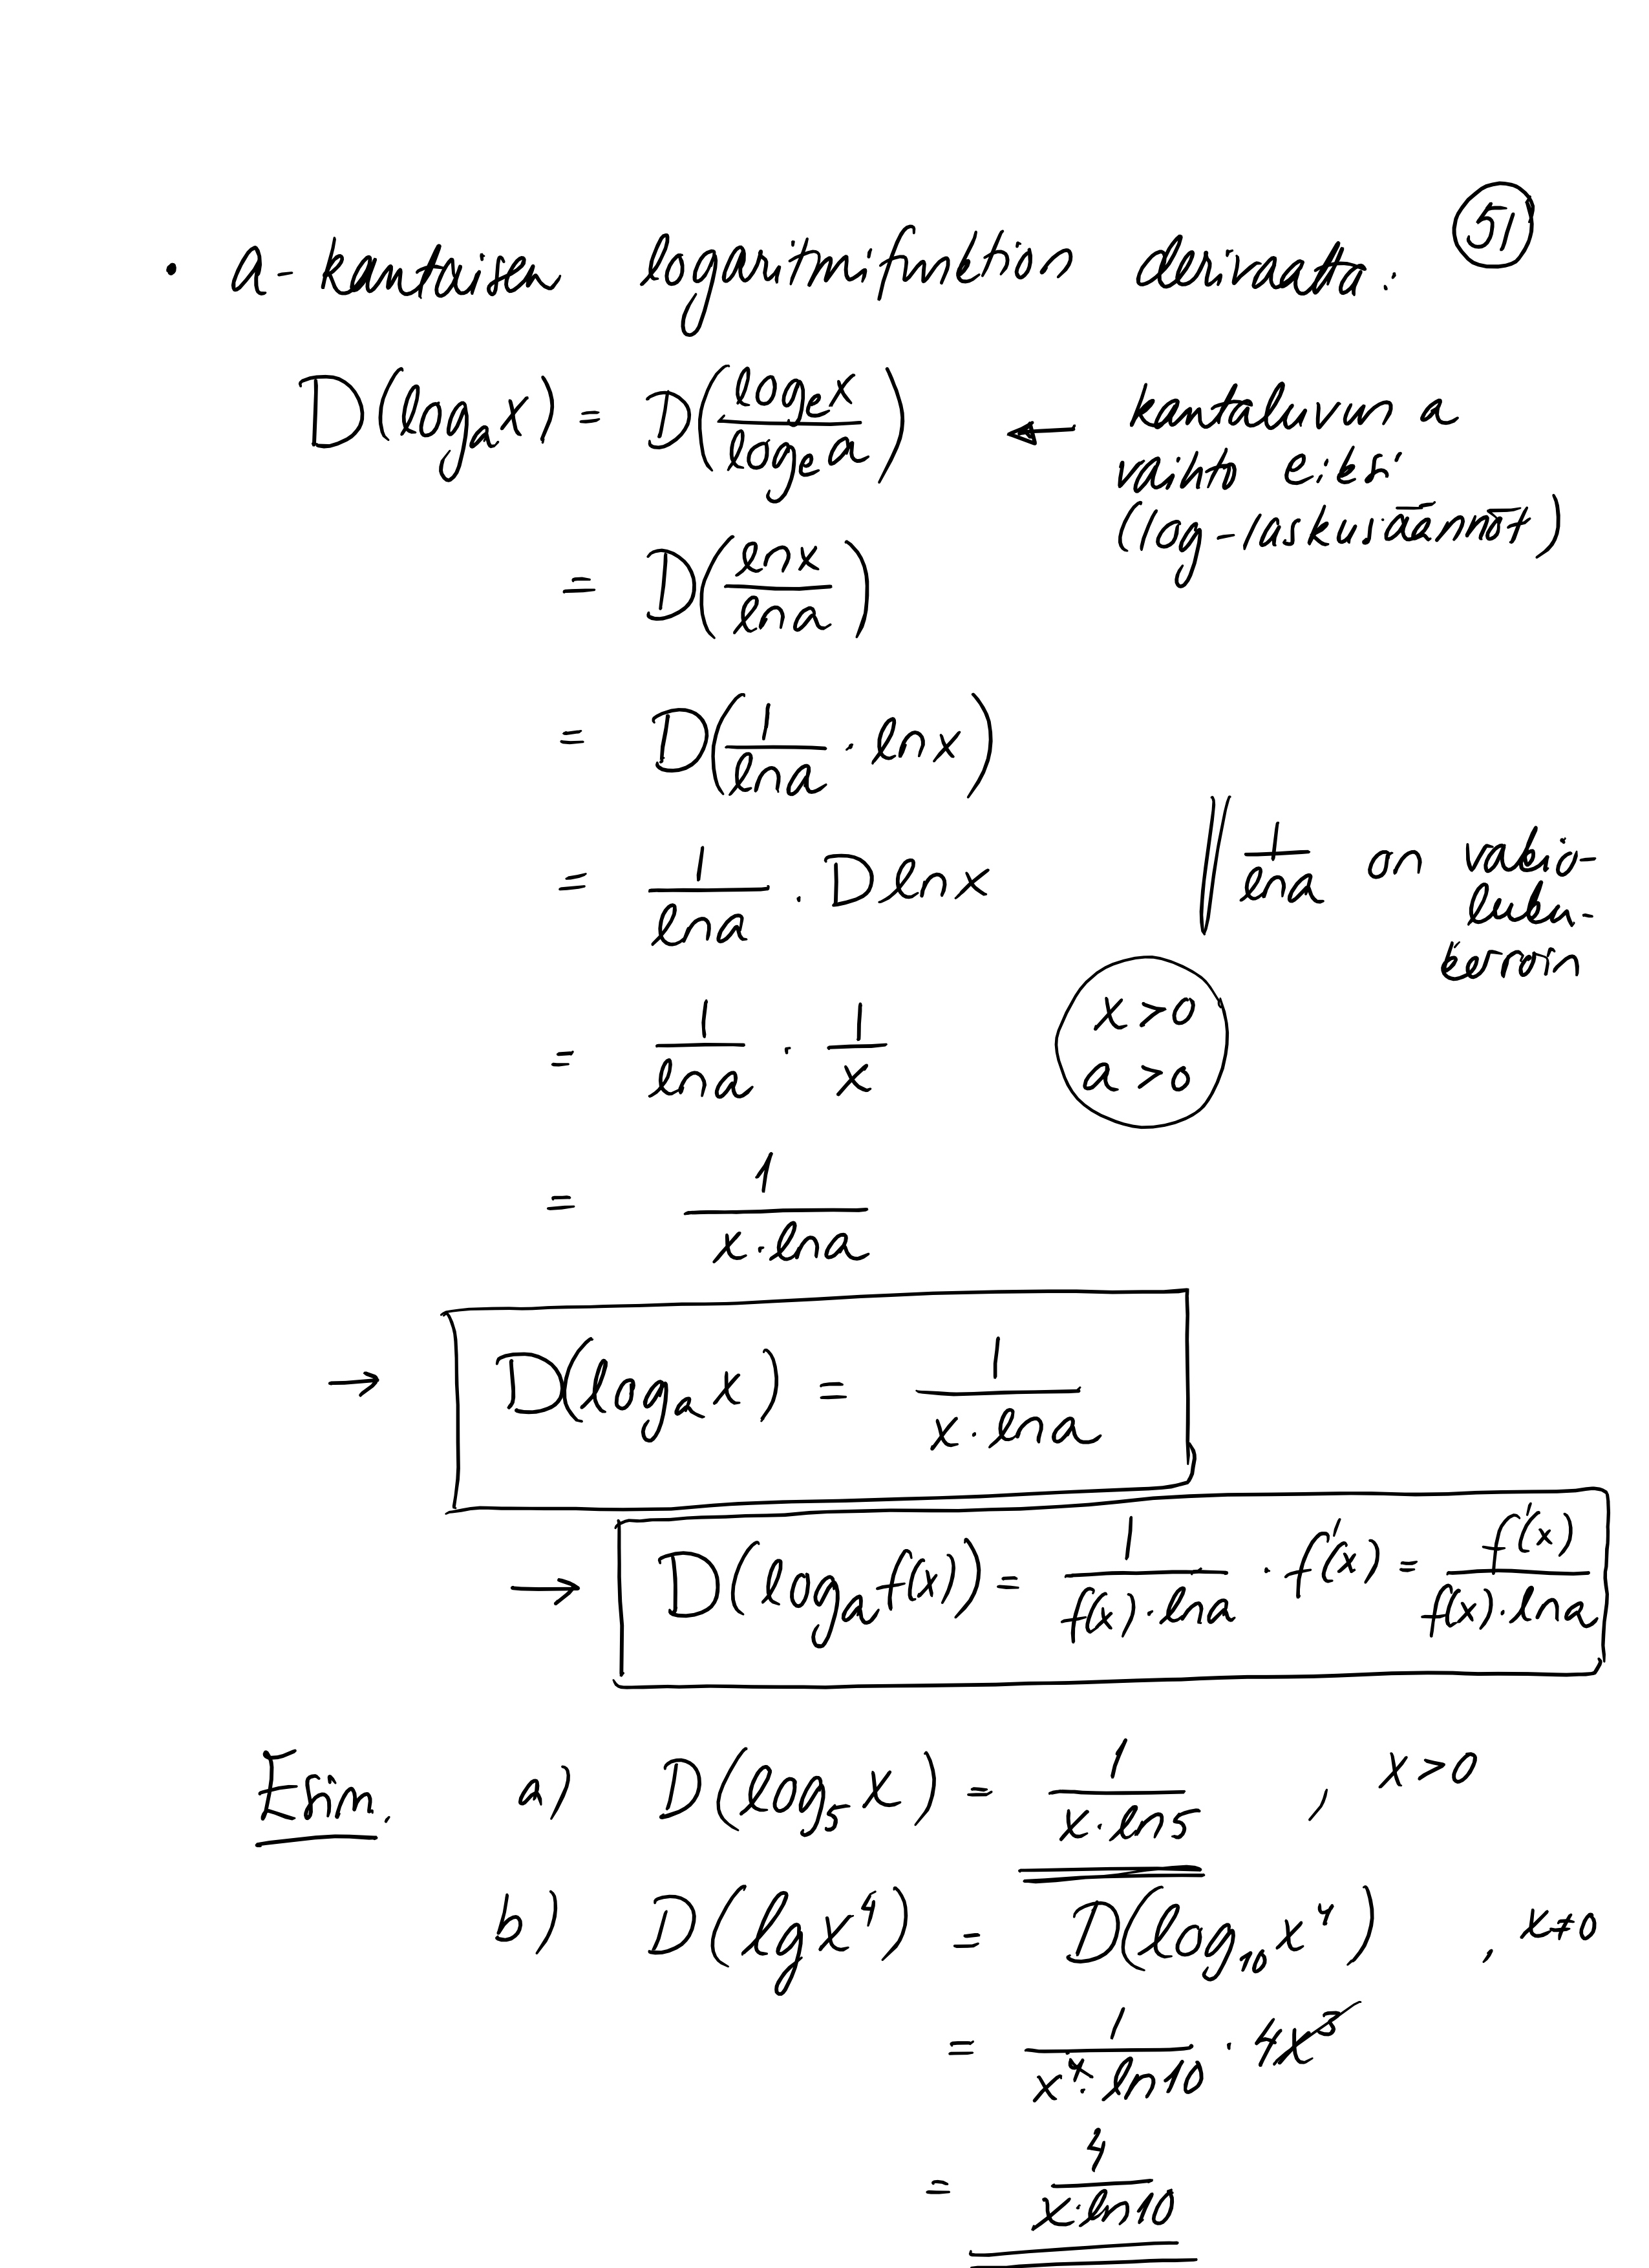 51
• a-kantaisen logaritmifunktion derivaatta:
D(logₐx) = D(logₑx / logₑa) ← kantaluvun a
vaihto e:ksi
(log-laskusäännöt)
= D(lnx / lna)
= D(1/lna · lnx)
= 1/lna · D lnx ‖ 1/lna on vakio-
luku-
kerroin
= 1/lna · 1/x
x > 0
a > 0
= 1/(x·lna)
→ D(logₐx) = 1/(x·lna)
→ D(logₐf(x)) = 1/(f(x)·lna) · f'(x) = f'(x)/(f(x)·lna)
Esim. a) D(log₅x) = 1/(x·ln5) , x > 0
b) D(lgx⁴) = D(log₁₀x⁴) , x≠0
= 1/(x⁴·ln10) · 4x³
= 4/(x·ln10)